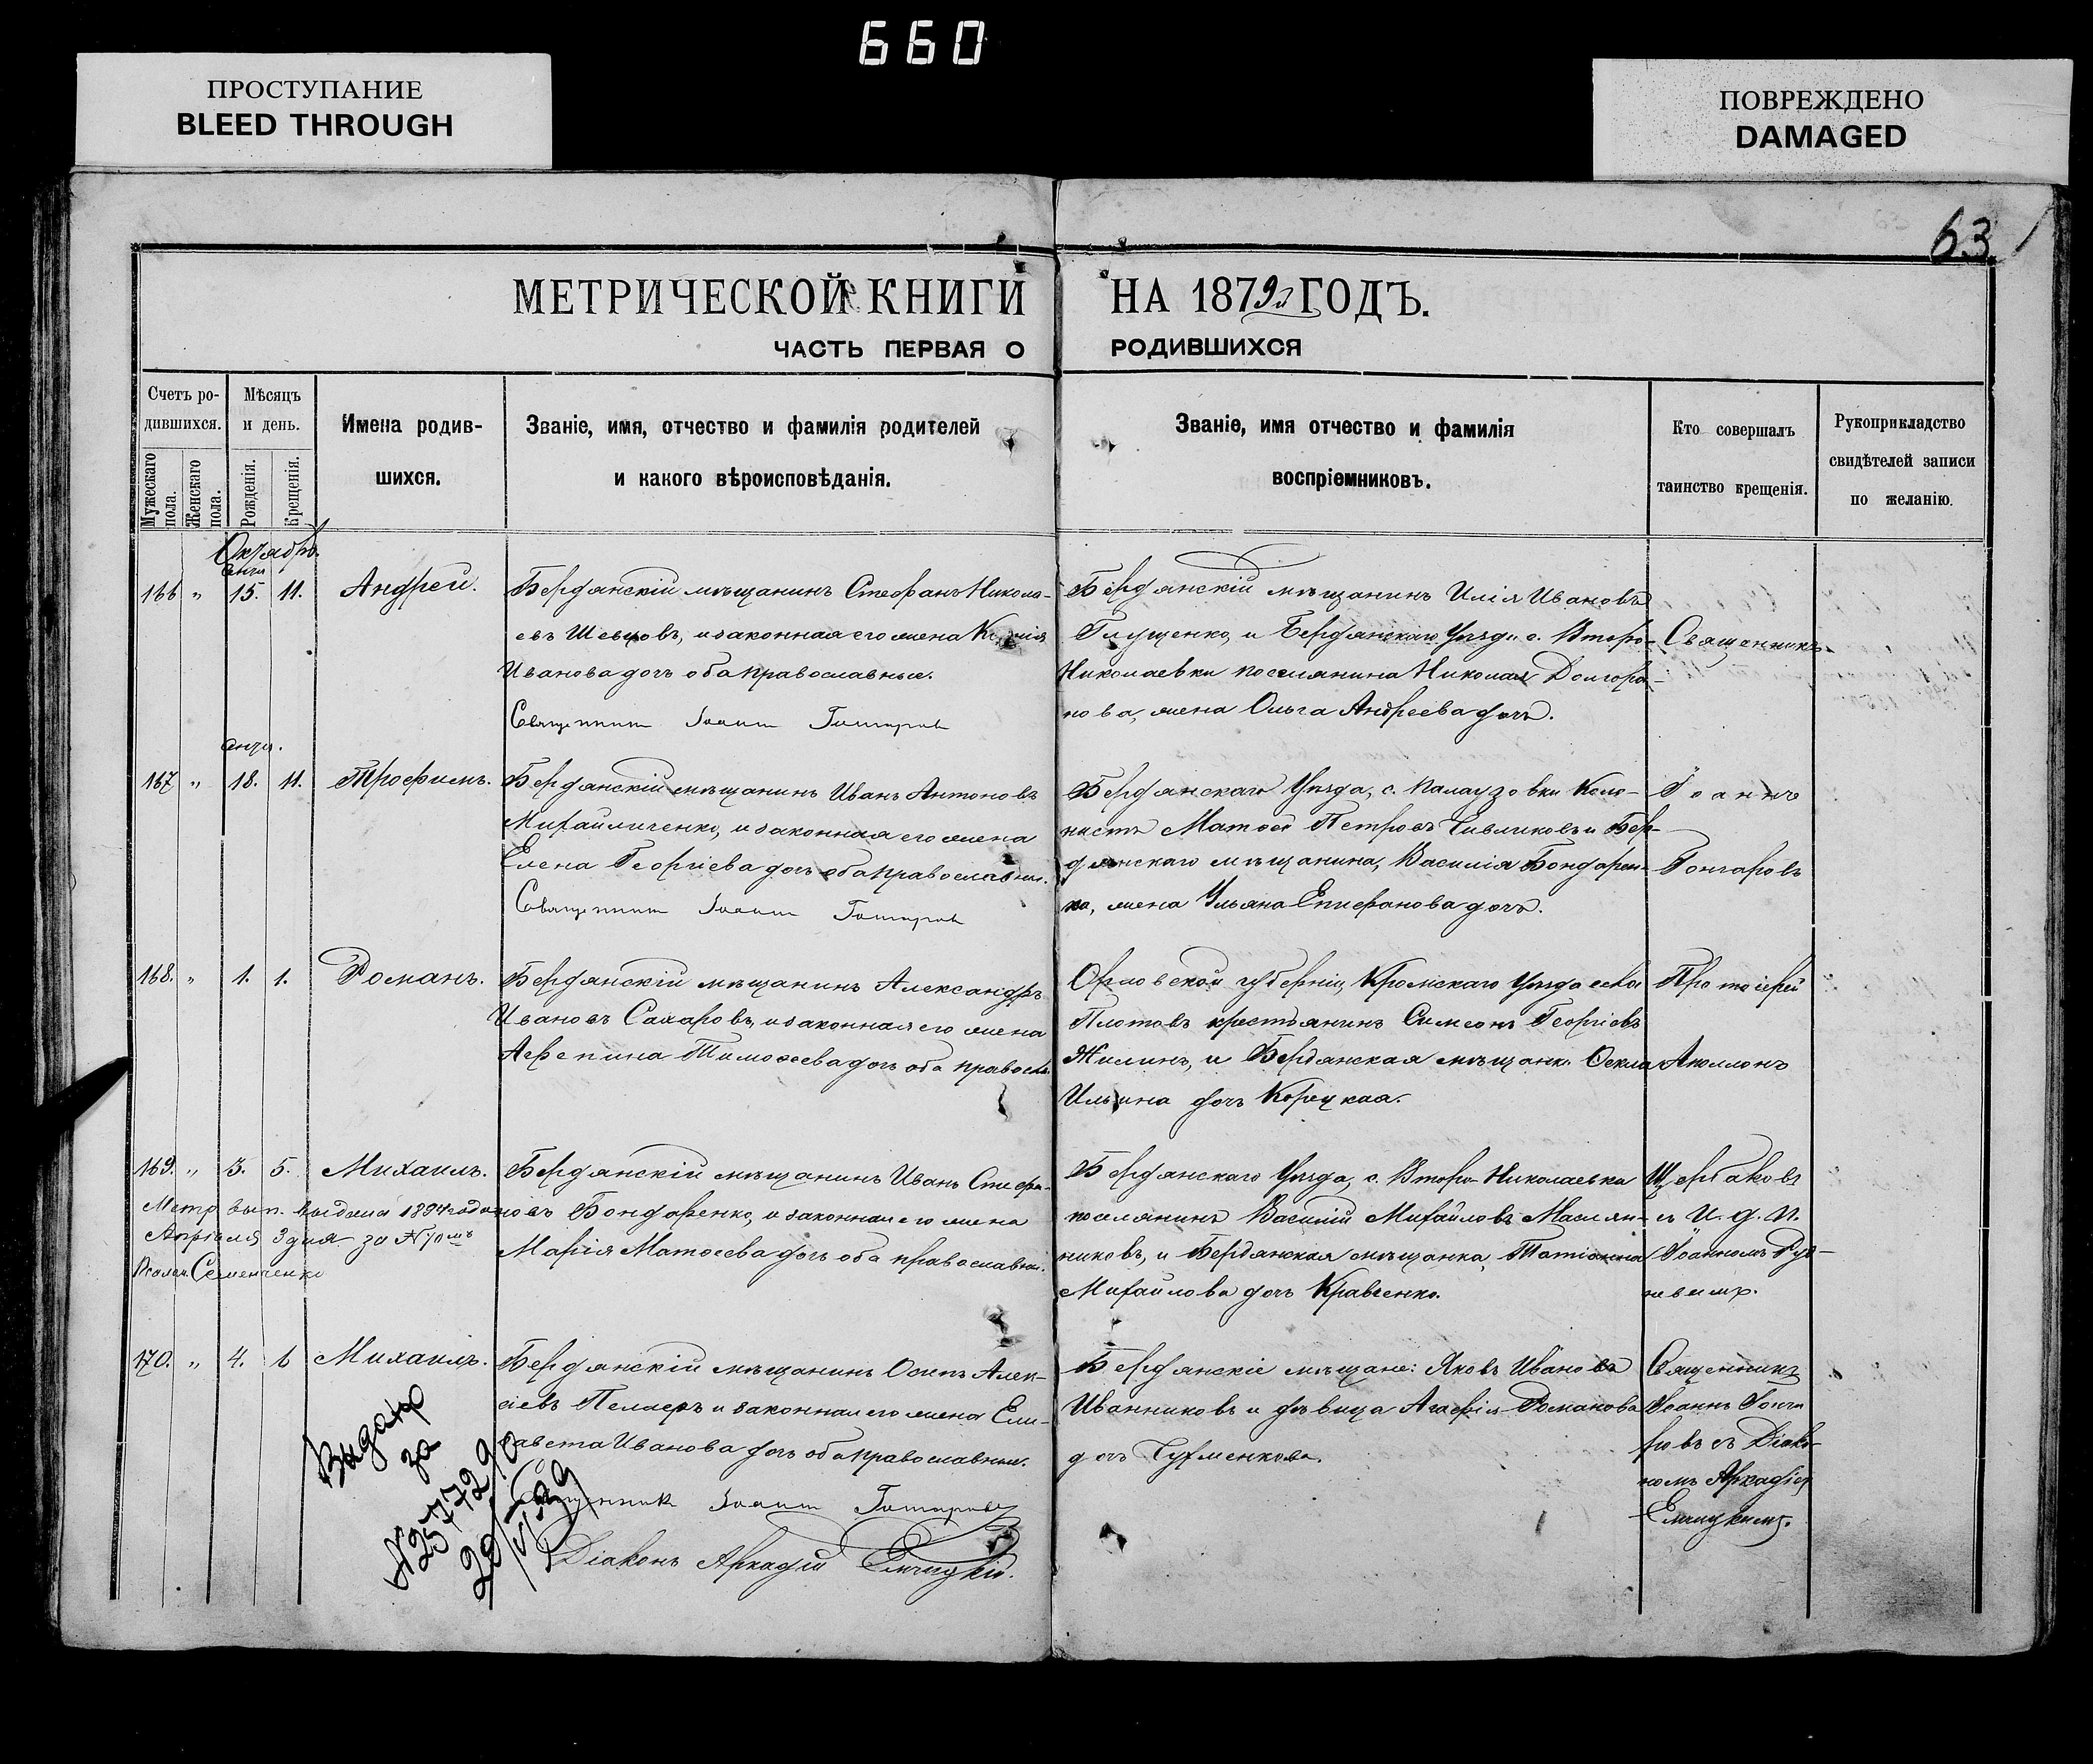 660
ПРОСТУПАНИЕ
BLEED THROUGH
ПОВРЕЖДЕНО
DAMAGED
63.
МЕТРИЧЕСКОЙ КНИГИ НА 1879й ГОДЪ.
ЧАСТЬ ПЕРВАЯ О РОДИВШИХСЯ
Счетъ ро-
дившихся.
Мужескаго пола.
Женскаго пола.
Мѣсяцъ
и день.
Рожденія.
Крещенія.
Имена родив-
шихся.
Званіе, имя, отчество и фамилія родителей
и какого вѣроисповѣданія.
Званіе, имя отчество и фамилія
воспріемниковъ.
Кто совершалъ
таинство крещенія.
Рукоприкладство
свидѣтелей записи
по желанію.
Октябрь.
Сент.
166 " 15. 11. Андрей.
Бердянскій мѣщанинъ Стефанъ Никола-
евъ Шевцовъ, и законная его жена
Иванова дочь оба православные.
Священник Иоанн Гончаров
Бердянскій мѣщанинъ Илія Ивановъ
Глущенко, и Бердянскаго Уѣзда с. Второ-
Николаевки поселянина Николая Долгора-
нова, жена Ольга Андреева дочь.
Священникъ
Сент.
167 " 18. 11. Трофимъ.
Бердянскій мѣщанинъ Иванъ Антоновъ
Михайличенко, и законная его жена
Елена Георгіева дочь оба православные.
Священник Иоанн Гончаров
Бердянскаго Уѣзда, с. Палаузовки Коло-
нистъ Матвей Петровъ Чивликовъ и Бер-
дянскаго мѣщанина, Василія Бондарен-
ка, жена Ульяна Епифанова дочь.
Іоаннъ
Гончаровъ
168. " 1. 1. Романъ.
Бердянскій мѣщанинъ Александръ
Ивановъ Сахаровъ, и законная его жена
Агрепина Тимоѳеева дочь оба правосл.
Орловской губерніи, Кромскаго Уѣзда села
Плотовъ крестьянинъ Симеонъ Георгіевъ
Жилинъ, и Бердянская мѣщанк. Ѳекла
Ильина дочь Корецкая.
Протоіерей
Аполлонъ
169. " 3. 5. Михаилъ.
Бердянскій мѣщанинъ Иванъ Стефа-
новъ Бондаренко, и законная его жена
Марія Матѳеева дочь оба православные.
Метр. вып. выдана 1894 года
Апрѣля 3 дня за №
Семенченко
Бердянскаго Уѣзда, с. Второ-Николаевка
поселянинъ Василій Михайловъ Маслян-
никовъ, и Бердянская мѣщанка, Татіанна
Михайлова дочь Кравченко.
Щербаковъ
съ И. д. П.
Іоанномъ Руд-
невымъ.
170. " 4. 6 Михаилъ.
Бердянскій мѣщанинъ Осипъ Алек-
сіевъ Пеллеръ и законная его жена Ели-
савета Иванова дочь оба православные.
Священник Иоанн Гончаров
Діаконъ Аркадій Ельчицкій.
Выдано
за
Бердянскіе мѣщане: Яковъ Ивановъ
Иванниковъ и дѣвица Агафія Романова
дочь Чурменкова.
Священникъ
Іоаннъ Гонча-
ровъ съ Діако-
номъ Аркадіемъ
Ельчицкимъ.